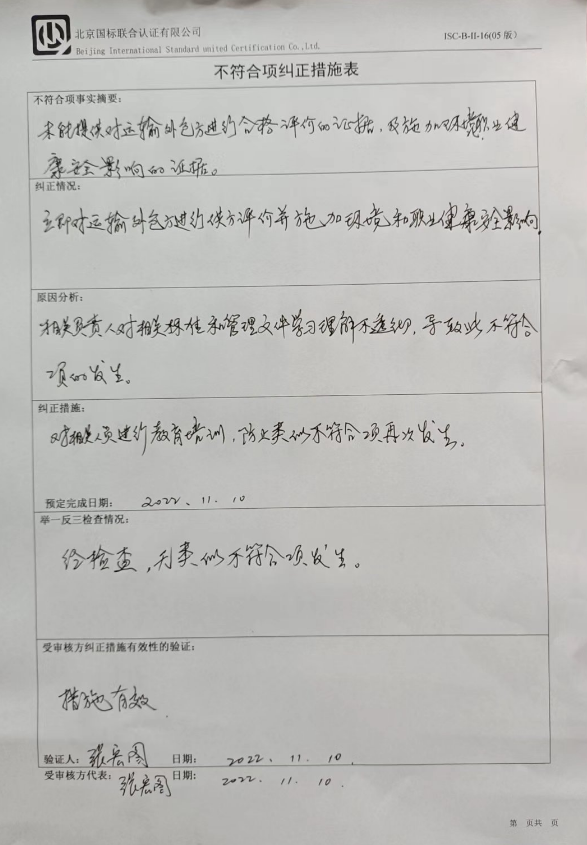 北京国标联合认证有限公司
Beijing International Standard united Certification Co.,Ltd.
ISC-B-II-16(05版)
不符合项纠正措施表
不符合项事实摘要:
未能提供对运输外包方进行合格评价的证据,及施加环境职业健
康安全影响的证据。
纠正情况:
立即对运输外包方进行供方评价并施加环境和职业健康安全影响。
原因分析:
相关负责人对相关标准和管理文件学习理解不透彻,导致此不符合
项的发生。
纠正措施:
对相关人员进行教育培训,防止类似不符合项再次发生。
预定完成日期: 2022.11.10
举一反三检查情况:
经检查,无类似不符合项发生。
受审核方纠正措施有效性的验证:
措施有效
验证人: 张宏图 日期: 2022.11.10.
受审核方代表: 张宏图 日期: 2022.11.10.
第 页共 页